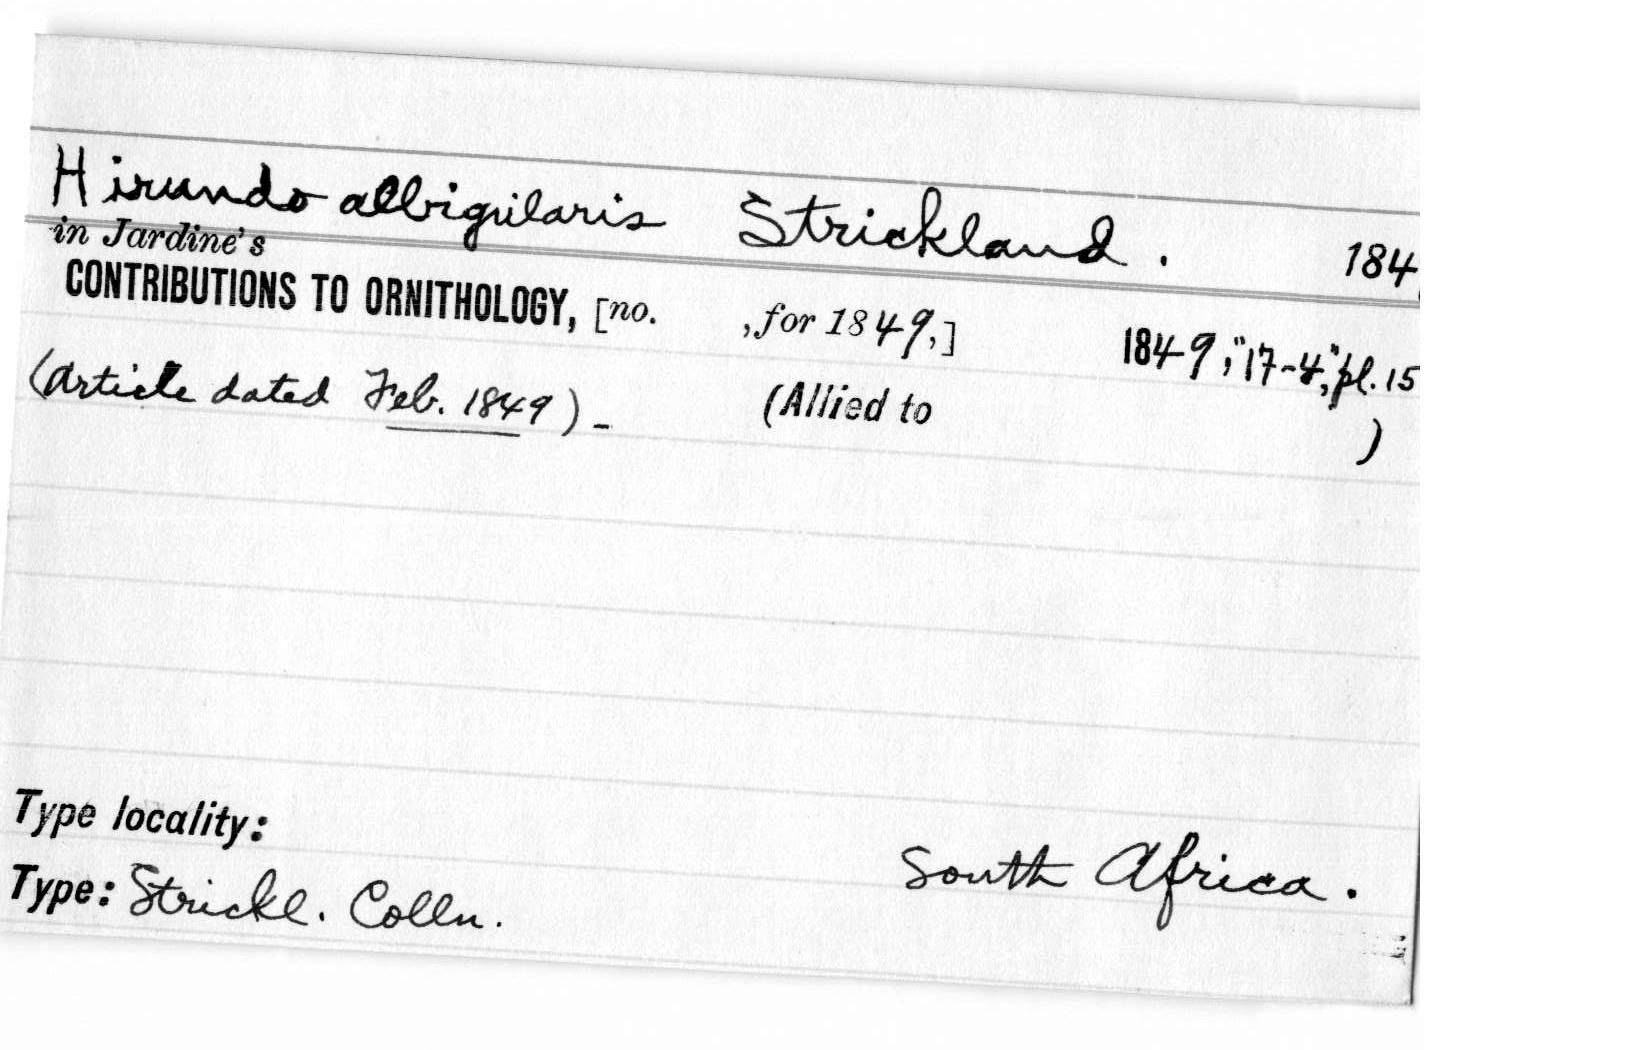 Hirundo albigularis Strickland. 184
in Jardine's
CONTRIBUTIONS TO ORNITHOLOGY, [no. , for 1849,] 1849, "17-4", pl. 15
(Article dated Feb. 1849) - (Allied to )
Type locality: South Africa.
Type: Strickl. Colln.